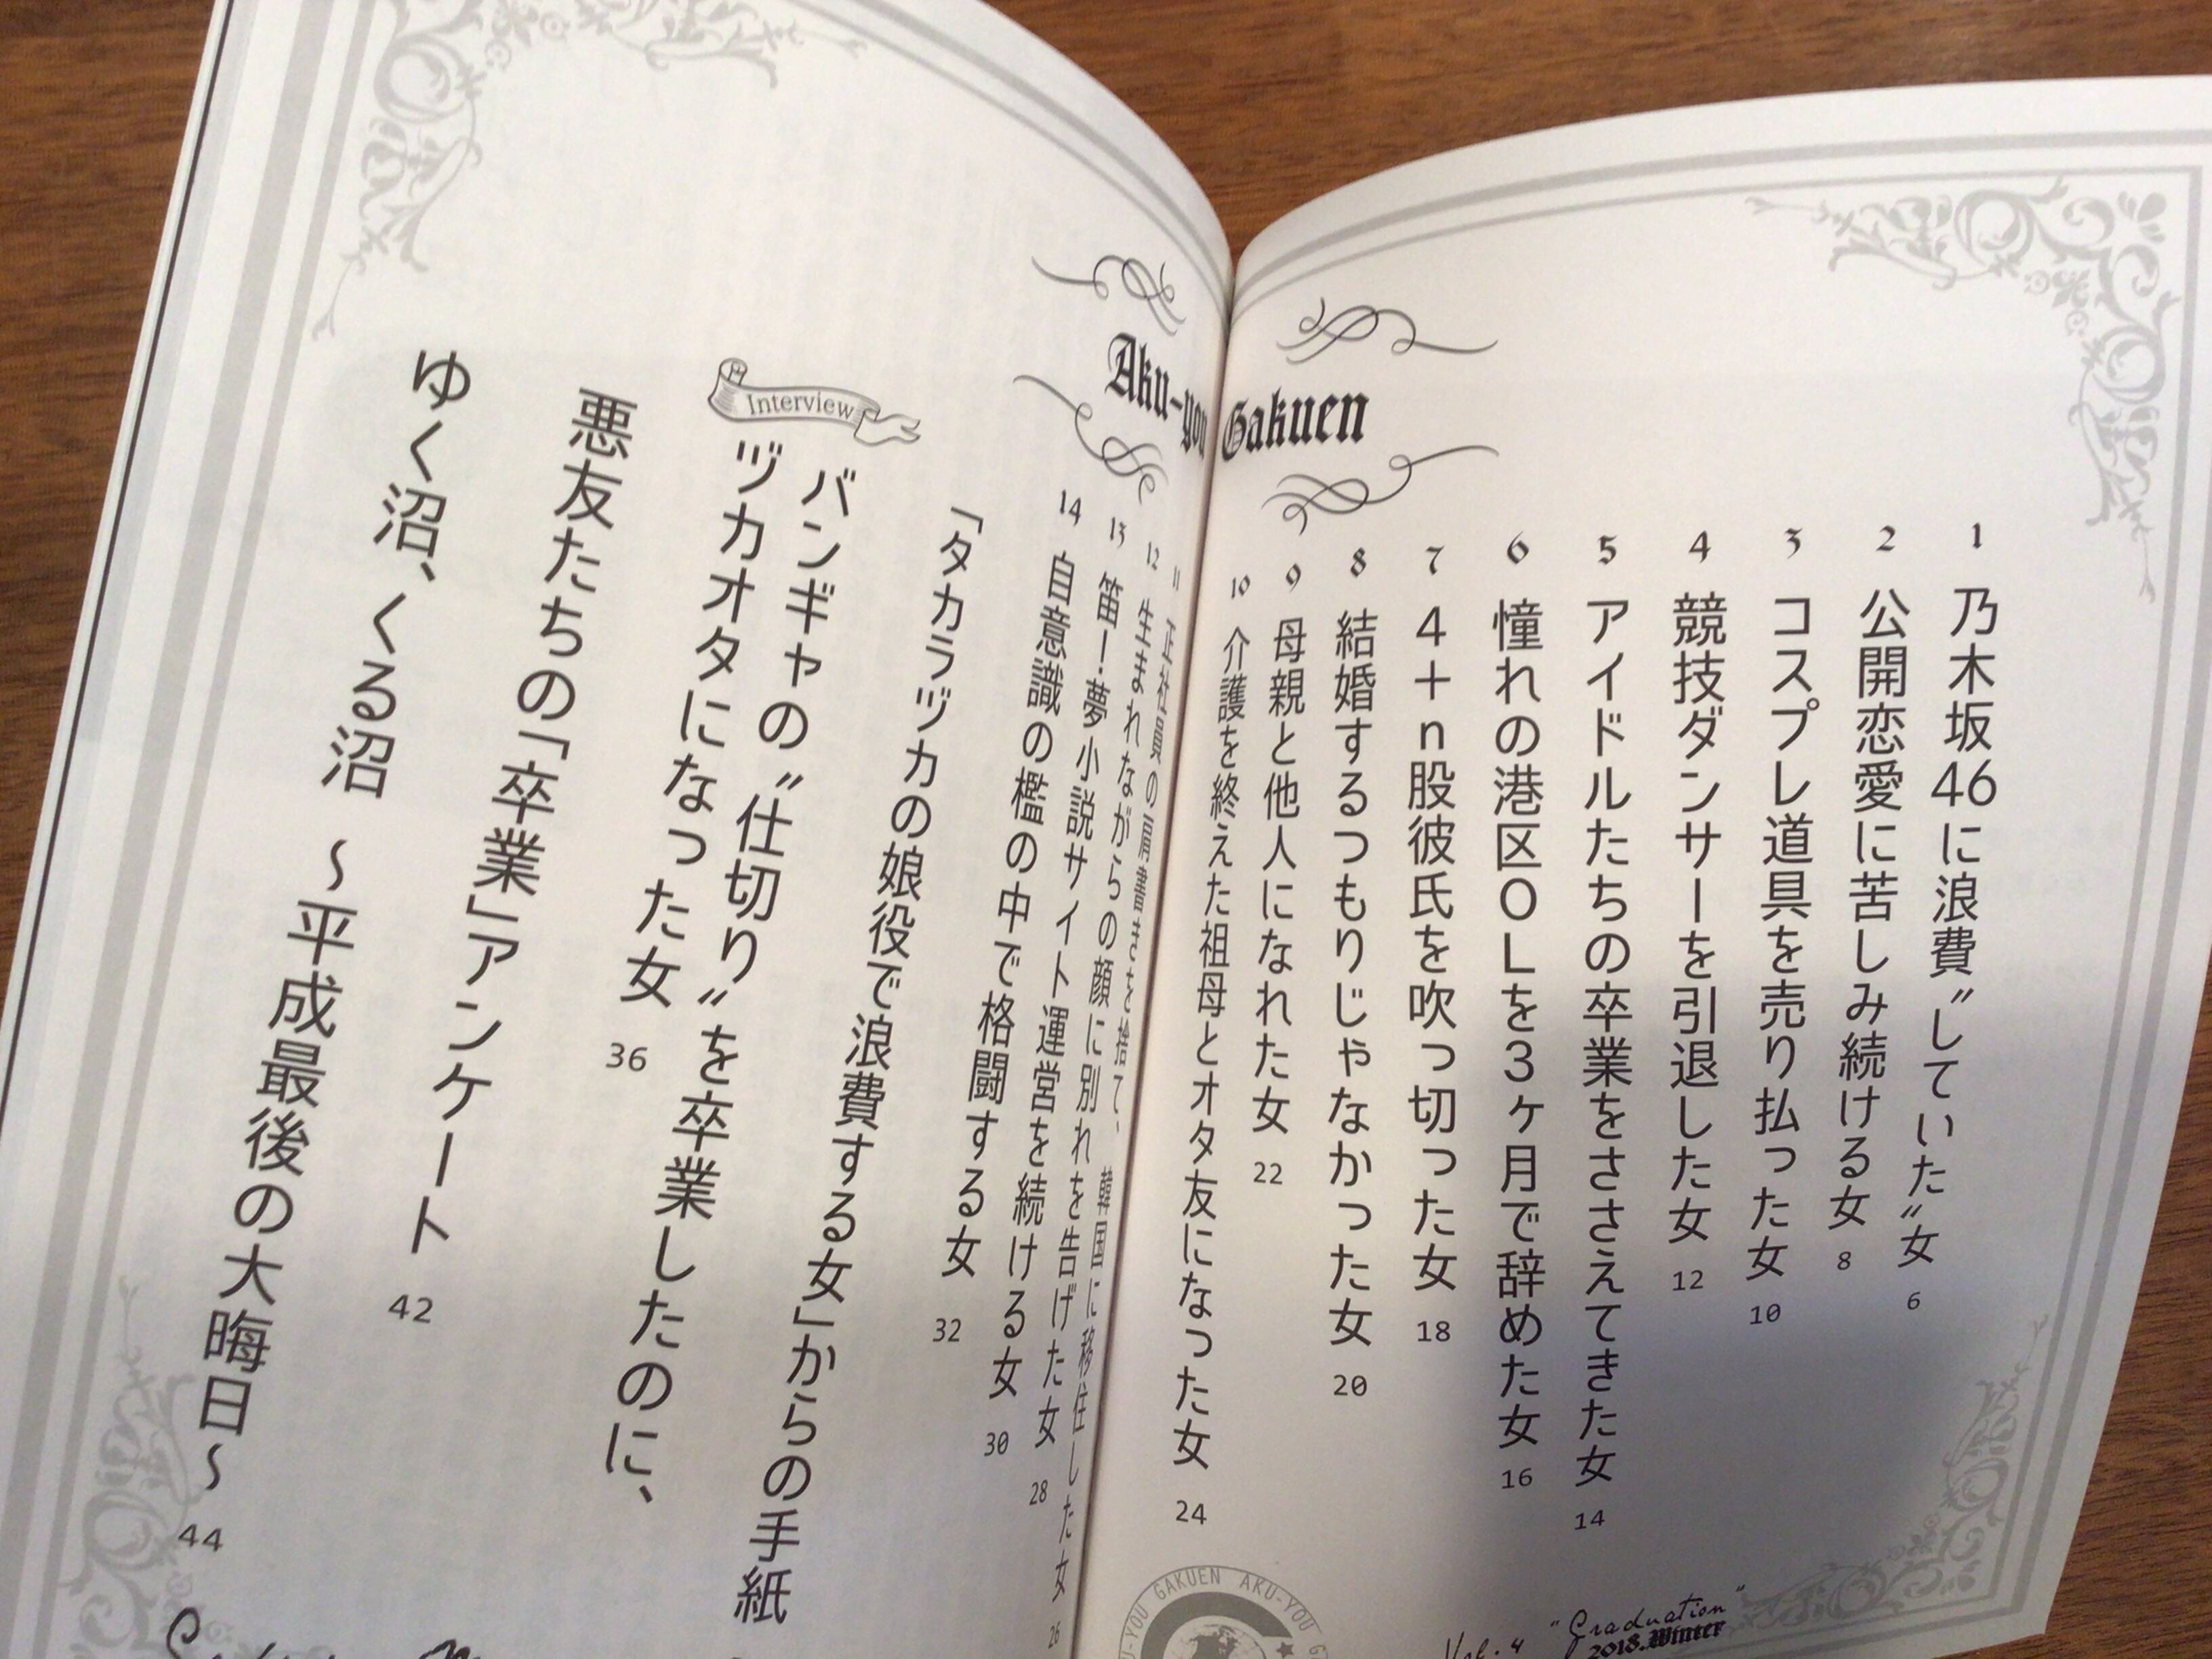 Aku-you Gakuen
1 乃木坂46に浪費〝していた〟女 6
2 公開恋愛に苦しみ続ける女 8
3 コスプレ道具を売り払った女 10
4 競技ダンサーを引退した女 12
5 アイドルたちの卒業をささえてきた女 14
6 憧れの港区OLを3ヶ月で辞めた女 16
7 4+n股彼氏を吹っ切った女 18
8 結婚するつもりじゃなかった女 20
9 母親と他人になれた女 22
10 介護を終えた祖母とオタ友になった女 24
11 の肩書きを捨て、韓国に移住した女 26
12 生まれながらの顔に別れを告げた女 28
13 笛!夢小説サイト運営を続ける女 30
14 自意識の檻の中で格闘する女 32
「タカラヅカの娘役で浪費する女」からの手紙
Interview
バンギャの〝仕切り〟を卒業したのに、
ヅカオタになった女 36
悪友たちの「卒業」アンケート 42
ゆく沼、くる沼 〜平成最後の大晦日〜 44
GAKUEN AKU-YOU
Vol.4 "Graduation"
2018.Winter